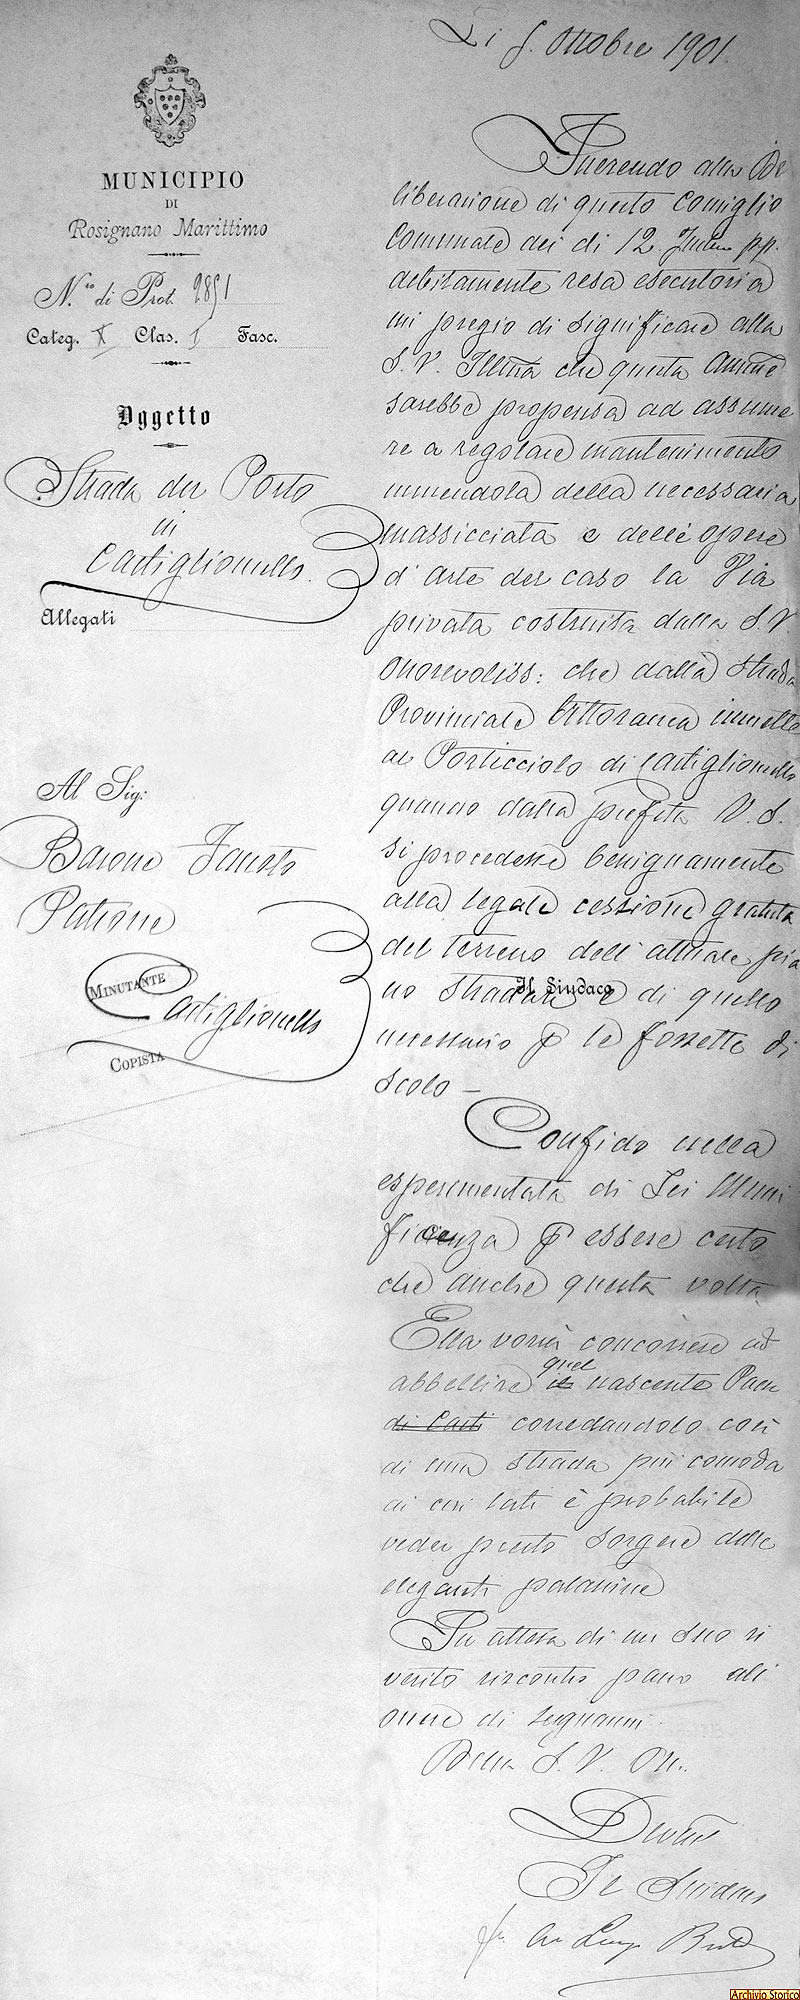 Li 8. Ottobre 1901.
MUNICIPIO
DI
Rosignano Marittimo
N.ro di Prot. 2851
Categ. X Clas. I Fasc.
Oggetto
Strada del Porto
in
Castiglioncello.
Allegati
Al Sig:
Barone Fausto
Patrone
MINUTANTE
Castiglioncello
COPISTA
Inerendo alla De
liberazione di questo Consiglio
Comunale dei di 12. pp.
debitamente resa esecutoria
mi pregio di significare alla
S. V. Illma che questa Ammne
sarebbe propensa ad assume
re a regolare mantenimento
munendola della necessaria
massicciata e delle opere
d'arte del caso la Via
privata costruita dalla S. V.
Onorevoliss: che dalla strada
Provinciale Littoranea immette
al Porticciolo di Castiglioncello
quando dalla prefata V. S.
si procedesse benignamente
alla legale cessione gratuita
del terreno dell'attuale pia
no stradale e di quello
Il Sindaco
necessario p le fossette di
scolo –
Confido nella
esperimentata di Lei Muni
ficenza p essere certo
che anche questa volta
Ella vorrà concorrere ad
abbellire il quel nascente Paese
di Casti corredandolo così
di una strada più comoda
ai cui lati è probabile
veder presto sorgere delle
eleganti palazzine
In attesa di un suo ri
verito riscontro passo all'
onore di segnarmi.
Della S. V. On.
Devmo
Il Sindaco
Luigi
Archivio Storico